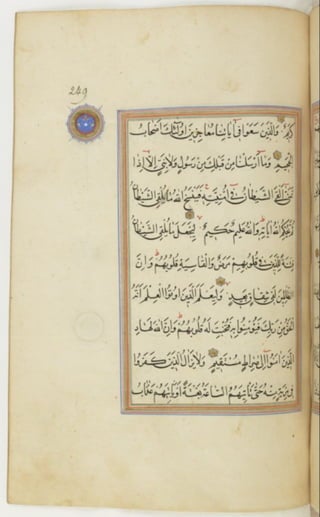 249
كريم والذين سعوا في آياتنا معاجزين أولئك أصحاب
الجحيم وما أرسلنا من قبلك من رسول ولا نبي إلا إذا
تمنى ألقى الشيطان في أمنيته فينسخ الله ما يلقي الشيطان
ثم يحكم الله آياته والله عليم حكيم ليجعل ما يلقي الشيطان
فتنة للذين في قلوبهم مرض والقاسية قلوبهم وإن
الظالمين لفي شقاق بعيد وليعلم الذين أوتوا العلم أنه
الحق من ربك فيؤمنوا به فتخبت له قلوبهم وإن الله لهاد
الذين آمنوا إلى صراط مستقيم ولا يزال الذين كفروا
في مرية منه حتى تأتيهم الساعة بغتة أو يأتيهم عذاب